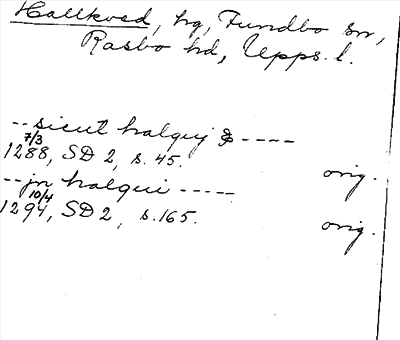 Hallkved, hg, Funbo sn,
Rasbo hd, Upps. l.
-- sicut halquj ----
7/3
1288, SD 2, s. 45. orig.
-- jn halqui -----
10/4
1294, SD 2, s. 165. orig.